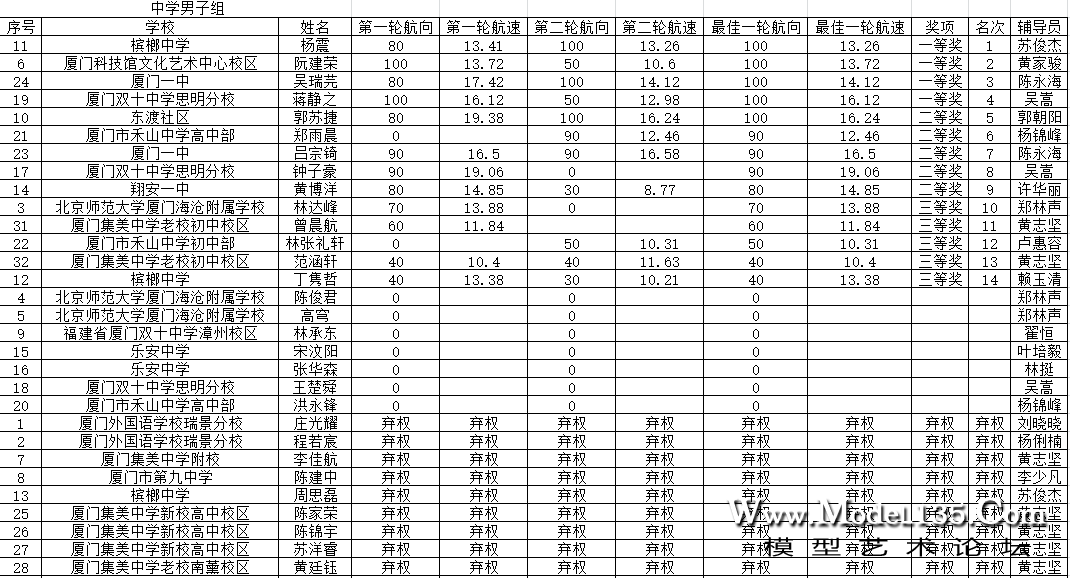 中学男子组
序号 学校 姓名 第一轮航向 第一轮航速 第二轮航向 第二轮航速 最佳一轮航向 最佳一轮航速 奖项 名次 辅导员
11 槟榔中学 杨震 80 13.41 100 13.26 100 13.26 一等奖 1 苏俊杰
6 厦门科技馆文化艺术中心校区 阮建荣 100 13.72 50 10.6 100 13.72 一等奖 2 黄家骏
24 厦门一中 吴瑞芫 80 17.42 100 14.12 100 14.12 一等奖 3 陈永海
19 厦门双十中学思明分校 蒋静之 100 16.12 50 12.98 100 16.12 一等奖 4 吴嵩
10 东渡社区 郭苏捷 80 19.38 100 16.24 100 16.24 二等奖 5 郭朝阳
21 厦门市禾山中学高中部 郑雨晨 0 90 12.46 90 12.46 二等奖 6 杨锦峰
23 厦门一中 吕宗锜 90 16.5 90 16.58 90 16.5 二等奖 7 陈永海
17 厦门双十中学思明分校 钟子豪 90 19.06 0 90 19.06 二等奖 8 吴嵩
14 翔安一中 黄博洋 80 14.85 30 8.77 80 14.85 二等奖 9 许华丽
3 北京师范大学厦门海沧附属学校 林达峰 70 13.88 0 70 13.88 三等奖 10 郑林声
31 厦门集美中学老校初中校区 曾晨航 60 11.84 60 11.84 三等奖 11 黄志坚
22 厦门市禾山中学初中部 林张礼轩 0 50 10.31 50 10.31 三等奖 12 卢惠容
32 厦门集美中学老校初中校区 范涵轩 40 10.4 40 11.63 40 10.4 三等奖 13 黄志坚
12 槟榔中学 丁隽哲 40 13.38 30 10.21 40 13.38 三等奖 14 赖玉清
4 北京师范大学厦门海沧附属学校 陈俊君 0 0 0 郑林声
5 北京师范大学厦门海沧附属学校 高穹 0 0 0 郑林声
9 福建省厦门双十中学漳州校区 林承东 0 0 0 翟恒
15 乐安中学 宋汶阳 0 0 0 叶培毅
16 乐安中学 张华森 0 0 0 林挺
18 厦门双十中学思明分校 王楚舜 0 0 0 吴嵩
20 厦门市禾山中学高中部 洪永锋 0 0 0 杨锦峰
1 厦门外国语学校瑞景分校 庄光耀 弃权 弃权 弃权 弃权 弃权 弃权 弃权 弃权 刘晓晓
2 厦门外国语学校瑞景分校 程若宸 弃权 弃权 弃权 弃权 弃权 弃权 弃权 弃权 杨俐楠
7 厦门集美中学附校 李佳航 弃权 弃权 弃权 弃权 弃权 弃权 弃权 弃权 黄志坚
8 厦门市第九中学 陈建中 弃权 弃权 弃权 弃权 弃权 弃权 弃权 弃权 李少凡
13 槟榔中学 周思磊 弃权 弃权 弃权 弃权 弃权 弃权 弃权 弃权 苏俊杰
25 厦门集美中学新校高中校区 陈家荣 弃权 弃权 弃权 弃权 弃权 弃权 弃权 弃权 黄志坚
26 厦门集美中学新校高中校区 陈锦宇 弃权 弃权 弃权 弃权 弃权 弃权 弃权 弃权 黄志坚
27 厦门集美中学新校高中校区 苏洋睿 弃权 弃权 弃权 弃权 弃权 弃权 弃权 弃权 黄志坚
28 厦门集美中学老校南薰校区 黄廷钰 弃权 弃权 弃权 弃权 弃权 弃权 弃权 弃权 黄志坚
Www.Model135.Com
模型艺术论坛